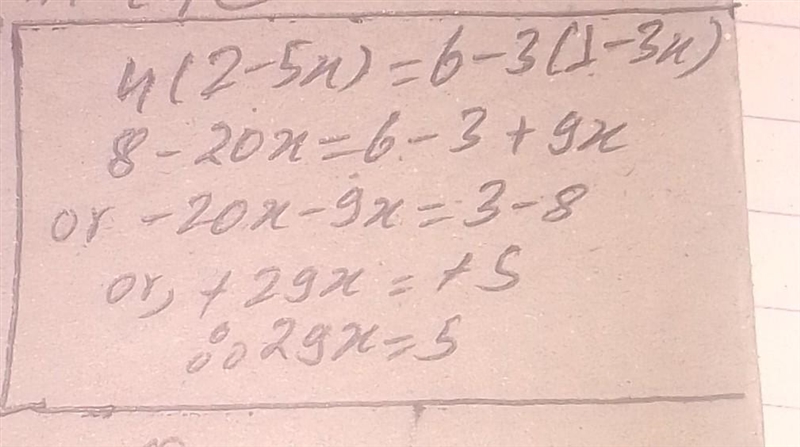 4(2-5x)=6-3(1-3x)
8-20x=6-3+9x
or -20x-9x=3-8
or, +29x=+5
∴29x=5